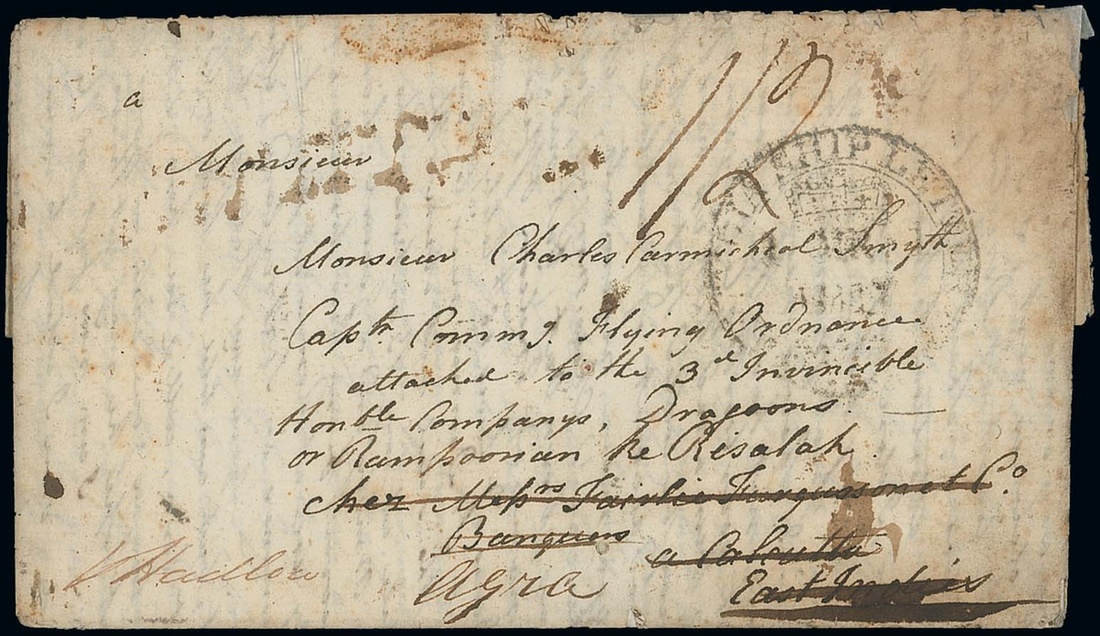 a
Monsieur
1/2
SHIP LETTER
Monsieur Charles Carmichael Smyth
Captn Commg. Flying Ordnance
attached to the 3d Invincible
Honble Companys, Dragoons.
or Rampoorian ke Risalah
chez Messrs Fairlie Furgusson et Co.
Banquers
a Calcutta
East Indies
Agra